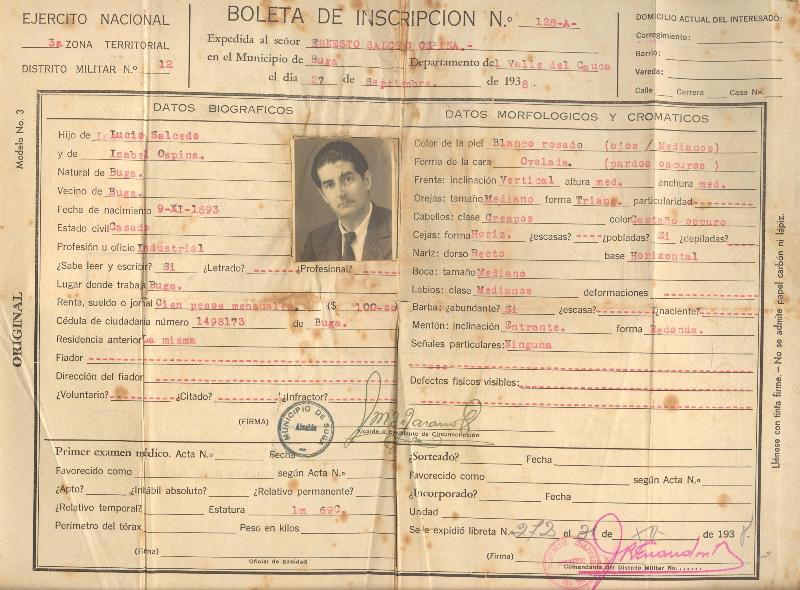 EJERCITO NACIONAL
3a ZONA TERRITORIAL
DISTRITO MILITAR N.º 12
BOLETA DE INSCRIPCION N.º 128-A-
Expedida al señor ERNESTO SALCEDO OSPINA.-
en el Municipio de Buga Departamento del Valle del Cauca
el día 27 de Septiembre. de 1938.
DOMICILIO ACTUAL DEL INTERESADO:
Corregimiento:
Barrio:
Vereda:
Calle Carrera Casa No.
Modelo No. 3
ORIGINAL
DATOS BIOGRAFICOS
Hijo de Lucio Salcedo
y de Isabel Ospina.
Natural de Buga.
Vecino de Buga.
Fecha de nacimiento 9-XI-1893
Estado civil Casado
Profesión u oficio Industrial
¿Sabe leer y escribir? Si ¿Letrado? ¿Profesional?
Lugar donde trabaja Buga.
Renta, sueldo o jornal Cien pesos mensuales. ($ 100-oo
Cédula de ciudadanía número 1498173 de Buga.
Residencia anterior La misma
Fiador
Dirección del fiador
¿Voluntario? ¿Citado? ¿Infractor?
(FIRMA)
MUNICIPIO DE BUGA
Alcaldía
DATOS MORFOLOGICOS Y CROMATICOS
Color de la piel Blanco rosado (ojos / Medianos)
Forma de la cara Ovalada. (pardos oscuros )
Frente: inclinación Vertical altura med. anchura med.
Orejas: tamaño Mediano forma Triang. particularidad
Cabellos: clase Crespos color Castaño oscuro
Cejas: forma Horiz. ¿escasas? ¿pobladas? Si ¿depiladas?
Nariz: dorso Recto base Horizontal
Boca: tamaño Mediano
Labios: clase Medianos deformaciones
Barba: ¿abundante? Si ¿escasa? ¿naciente?
Mentón: inclinación Entrante. forma Redonda.
Señales particulares: Ninguna
Defectos físicos visibles:
Alcalde o Expidente de Circunscripción
Primer examen médico. Acta N.º Fecha
Favorecido como según Acta N.º
¿Apto? ¿Inhábil absoluto? ¿Relativo permanente?
¿Relativo temporal? Estatura 1m 69C.
Perímetro del tórax Peso en kilos
(Firma)
Oficial de Sanidad
¿Sorteado? Fecha
Favorecido como según Acta N.º
¿Incorporado? Fecha
Unidad
Se le expidió libreta N. 272 el 31 de XII de 1938
(Firma)
Comandante del Distrito Militar No.
Llénese con tinta firme. — No se admite papel carbón ni lápiz.